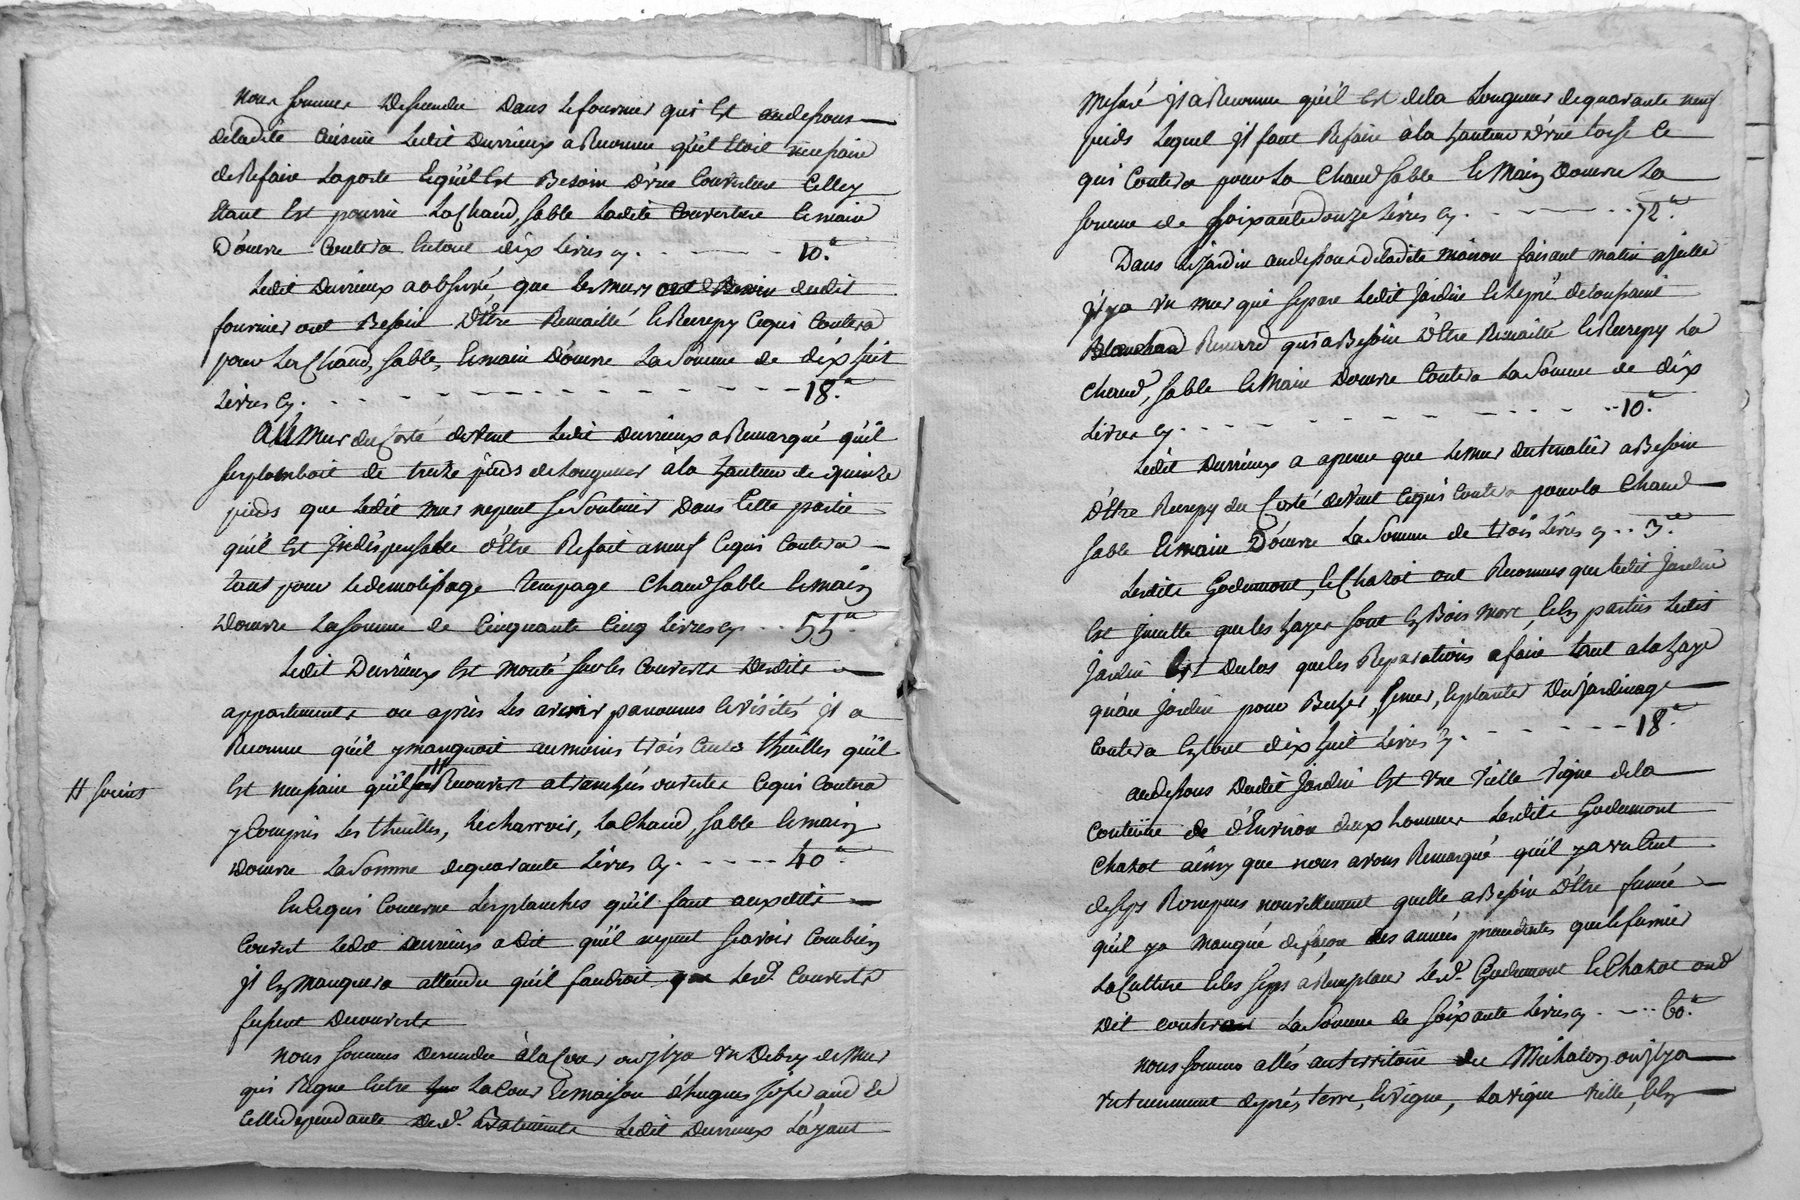 nous sommes descendu dans le fournier qui est audessous
deladitte cuisine ledit Durrieux a Reconnu qu'il etoit necessaire
de Refaire la porte Et qu'il Est Besoin d'une Couverture Celle y
Etant Est pourrie La Chaud, sable Ladite Couverture Lemain
D'ouvre Coutera Entout dix Livres cy . . . 10.#
Ledit Durrieux a observé que les murs dudit
fournier ont Besoin D'Etre Remaillé et Recrepy Cequi Coutera
pour La Chaud, sable, Lemain D'ouvre La Somme de dix huit
Livres Cy . . . 18.#
Au Mur du Costé devent Ledit Durrieux a Remarqué qu'il
surplomboit de treize pieds de Longueur à la hauteur de quinze
pieds que Ledit mur ne peut se Soutenir Dans Cette partie
qu'il Est Indispensable d'Etre Refait aneuf Cequi Coutera
tant pour Le demolissage Chaud sable Lemain
Douvre La Somme de Cinquante Cinq Livres cy . . 55.#
Ledit Durrieux Est monté sur les Couverts Desdits
appartements ou après Les avoir parcourus et visités il a
Reconnu qu'il y manquoit aumoins trois Cents thuilles qu'il
Est necessaire qu'ils Recouvert Cequi Coutera
# soient
y Compris Les thuilles, Le charrois, La Chaud, sable Lemain
Douvre La Somme de quarante Livres Cy . . . 40.#
En Cequi Concerne Les planches qu'il faut auxdits
Couvert Ledit Durrieux a Dit qu'il ne peut scavoir Combien
il En manquera attendu qu'il faudroit que Lesd. Couverts
fussent Decouverts
nous sommes Descendu à la Cour ou il y a un Debry de Mur
qui Regne Entre La Cour Lemaison d'hugues et
Celle dependante Desd. Batiments Ledit Durrieux L'ayant
Mesuré il a Reconnu qu'il Est de la Longueur de quarante neuf
pieds Lequel il faut Refaire à la hauteur d'une toise Ce
qui Coutera pour La Chaud sable Lemain Douvre La
Somme de Soixante douze Livres Cy . . . 72.#
Dans Le jardin audessous deladite maison faisant matin
il y a un mur qui separe Ledit jardin et Le pré de
Renard qui a Besoin d'Etre Remaillé et Recrepy La
Chaud, sable Lemain Douvre Coutera La Somme de dix
Livres Cy . . . 10.#
Ledit Durrieux a apercu que Le mur a Besoin
d'Etre Recrepy du Costé devent Cequi Coutera pour La Chaud
sable Lemain D'ouvre La Somme de trois Livres cy . . 3.#
Lesdits Godemont, et Chazot ont Reconnus que Ledit jardin
Est Inculte que les hayes sont En Bois mort, et En parties Ledit
jardin Est Declos que les Reparations a faire tant a la haye
qu'au jardin pour Becher, semer, et planter Du jardinage
Coutera En tout dix huit Livres cy . . . 18.#
audessous Dudit jardin Est une Vielle Vigne de la
Contenue de d'Environ deux hommes Lesdits Godemont
Chazot ainsy que nous avons Remarqué qu'il y a un Cent
de seps Rompus nouvellement quelle a Besoin d'Etre fumée
qu'il y a manqué de facon des années precedentes que Le fumier
La Culture et Les seps a Remplacer Lesd. Godemont et Chazot ont
Dit couteront La Somme de soixante Livres cy . . . 60.#
Nous sommes allés au territoire de Michalon ou il y a
un tenement de prés, terre, et vigne, La vigne vielle, et En